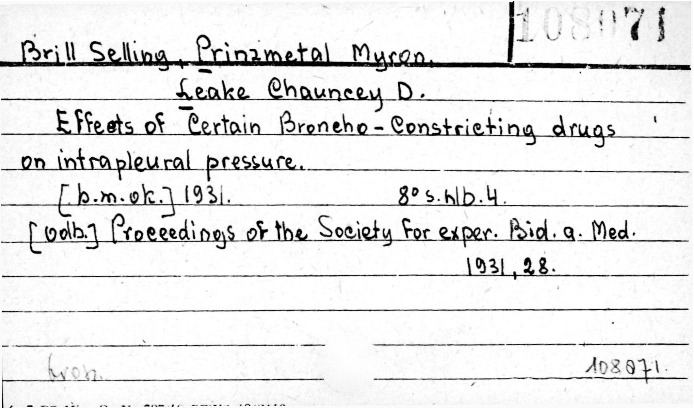 108071
Brill Selling, Prinzmetal Myron,
Leake Chauncey D.
Effects of Certain Broncho-Constricting drugs
on intrapleural pressure.
[b.m.ok.] 1931. 8° s. nlb. 4.
[odb.] Proceedings of the Society for exper. Biol. a. Med.
1931, 28.
108071.